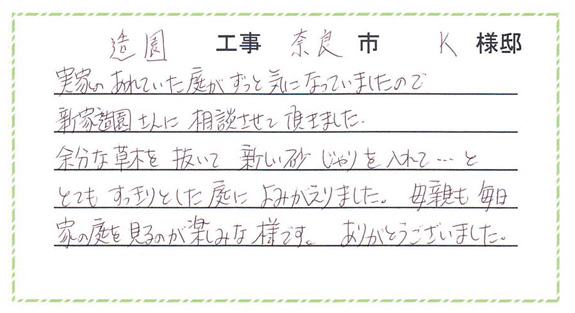 造園 工事 奈良 市 K 様邸
実家のあれていた庭がずっと気になっていましたので
新家造園さんに 相談させて頂きました。
余分な草木を抜いて 新しい砂じゃりを入れて…と
とてもすっきりとした庭によみがえりました。 母親も毎日
家の庭を見るのが楽しみな様です。 ありがとうございました。